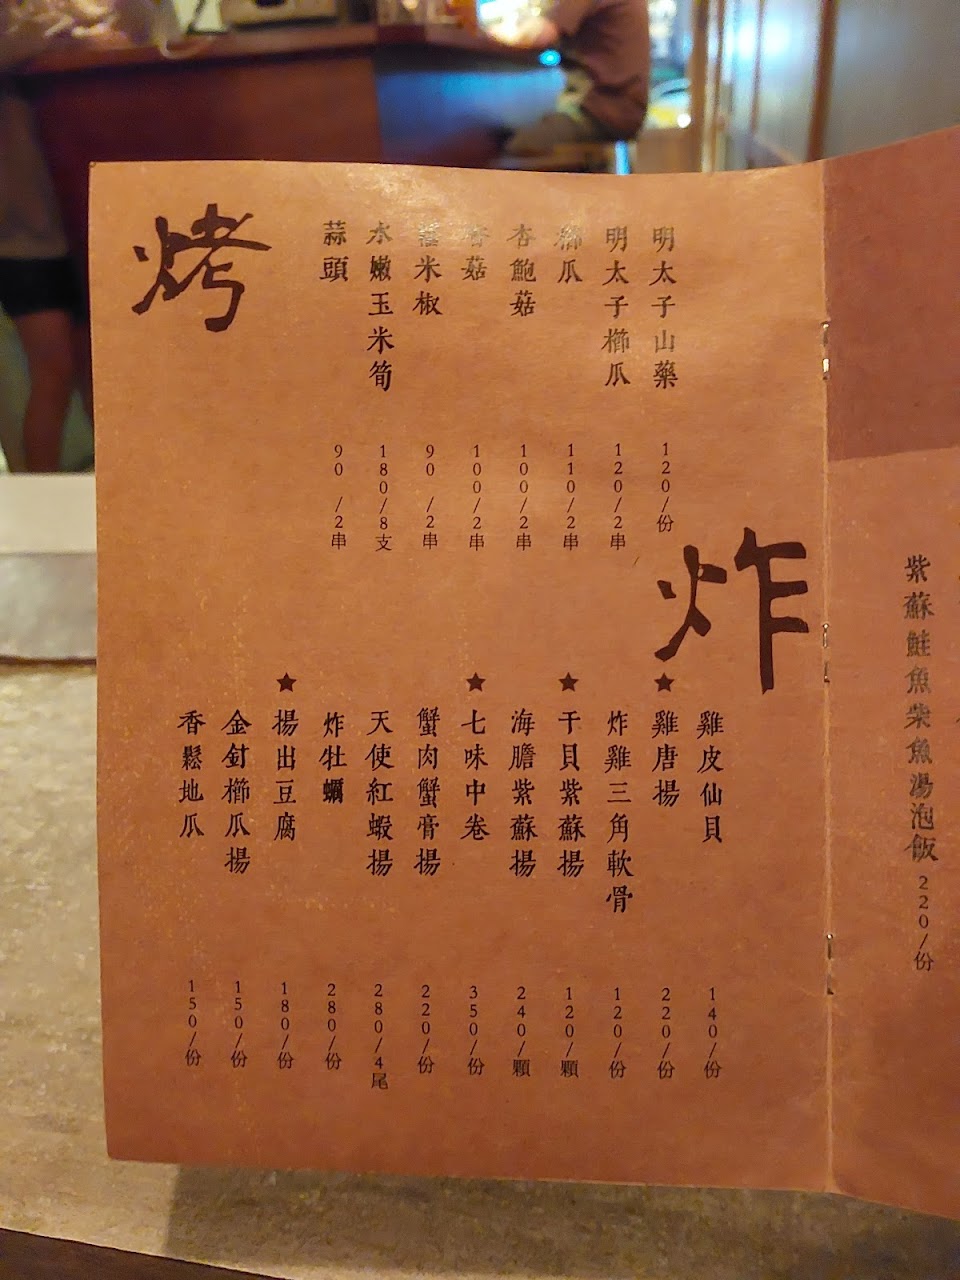 紫蘇鮭魚柴魚湯泡飯 220/份
烤
明太子山藥 120/份
明太子櫛瓜 120/2串
櫛瓜 110/2串
杏鮑菇 100/2串
香菇 100/2串
糯米椒 90/2串
水嫩玉米筍 180/8支
蒜頭 90/2串
炸
雞皮仙貝 140/份
★雞唐揚 220/份
炸雞三角軟骨 120/份
★干貝紫蘇揚 120/顆
海膽紫蘇揚 240/顆
★七味中卷 350/份
蟹肉蟹膏揚 220/份
天使紅蝦揚 280/4尾
炸牡蠣 280/份
★揚出豆腐 180/份
金釘櫛瓜揚 150/份
香鬆地瓜 150/份